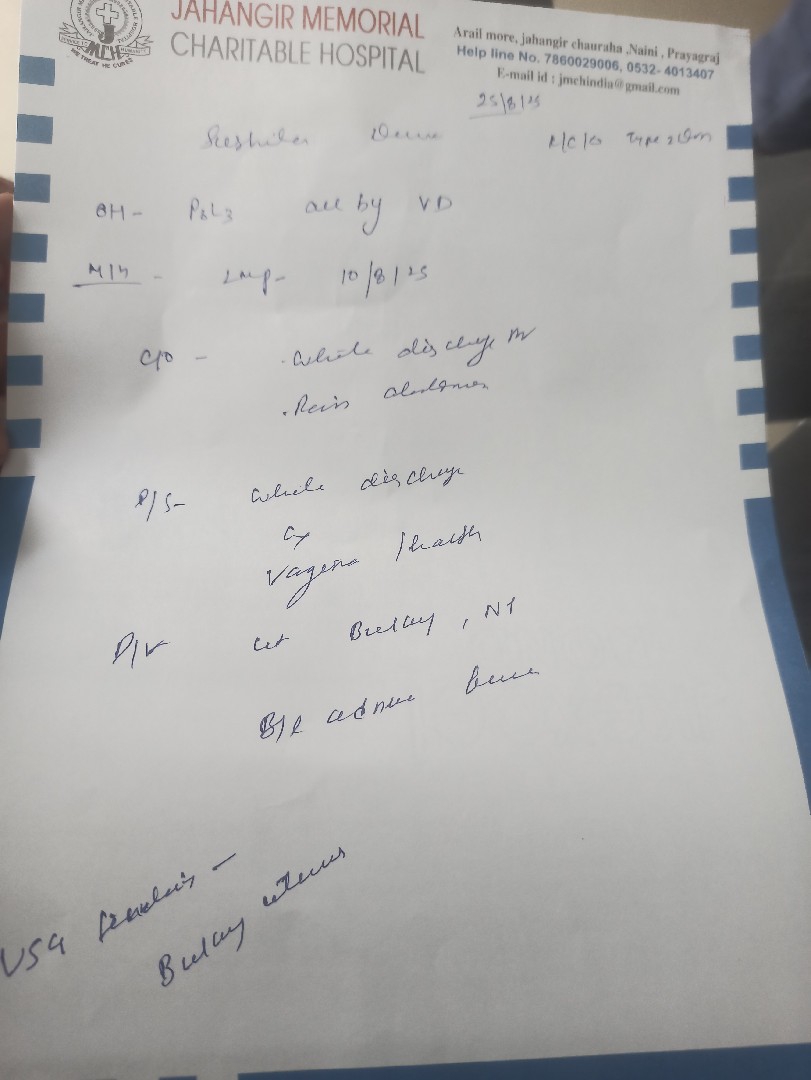 JAHANGIR MEMORIAL
CHARITABLE HOSPITAL
Arail more, jahangir chauraha ,Naini , Prayagraj
Help line No. 7860029006, 0532- 4013407
E-mail id : jmchindia@gmail.com
25/8/25
K/C/O Type 2 Dm
OH - P3L3 all by VD
M/H - LMP - 10/8/25
C/O - . White discharge
. Pain abdomen
P/S - White discharge
Cx
Vagina healthy
P/V Ut Bulky, NT
B/L
USG -
Bulky uterus